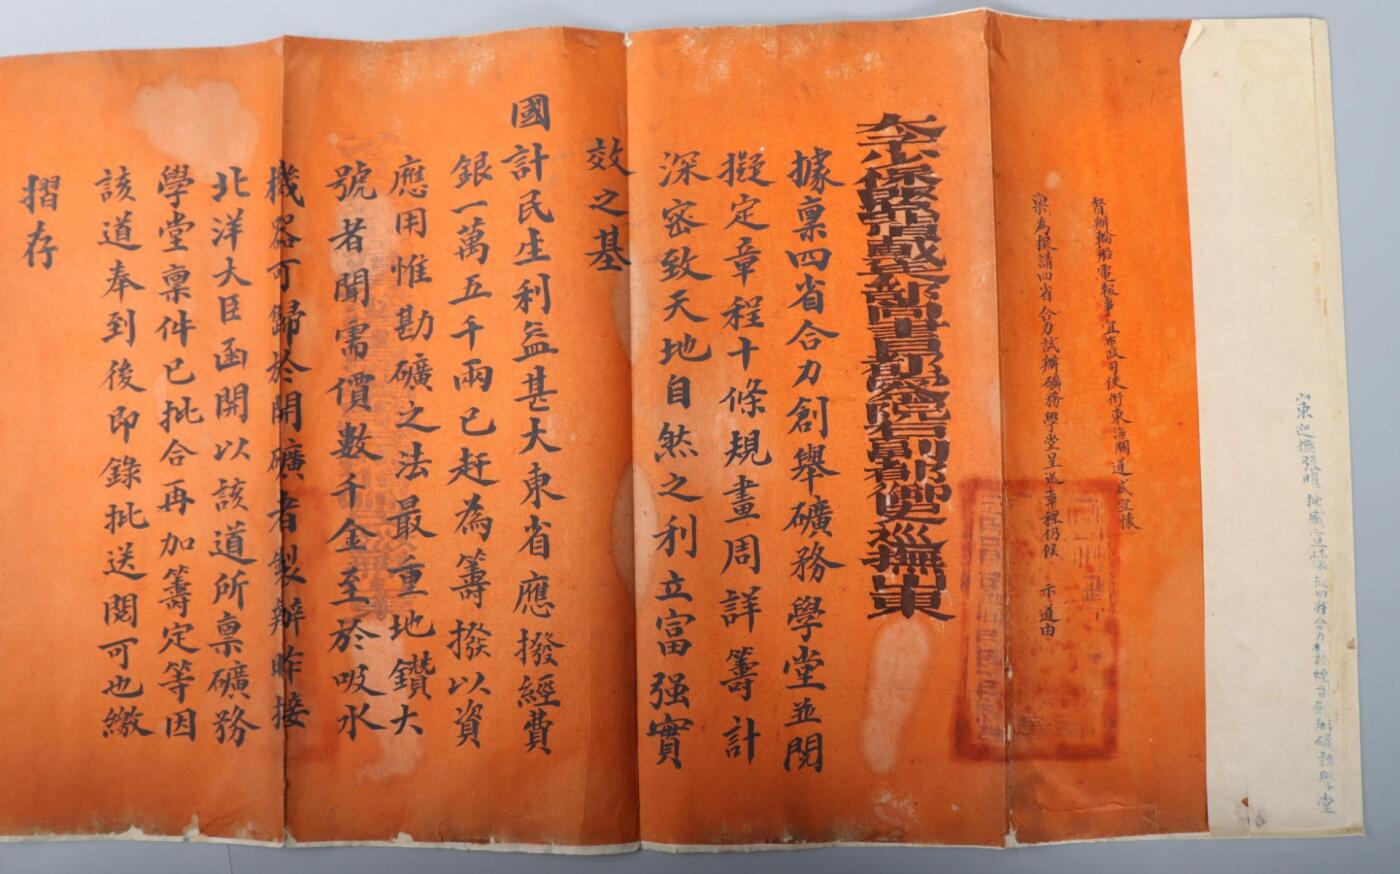 山東巡撫張曜批盛宣懷擬四省合力於煙台創辦礦務學堂
督辦輪船電報事宜布政司使銜東海關道盛宣懷
稟為擬請四省合力試辦礦務學堂呈送章程仍候 示遵由
部尚書都察院右副都御史巡撫山東
據稟四省合力創舉礦務學堂並閱
擬定章程十條規畫周詳籌計
深密致天地自然之利立富强實
效之基
國計民生利益甚大東省應撥經費
銀一萬五千兩已赶為籌撥以資
應用惟勘礦之法最重地鑽大
號者聞需價數千金至於吸水
機器可歸於開礦者製辦昨接
北洋大臣函開以該道所禀礦務
學堂禀件已批合再加籌定等因
該道奉到後即錄批送閱可也繳
摺存